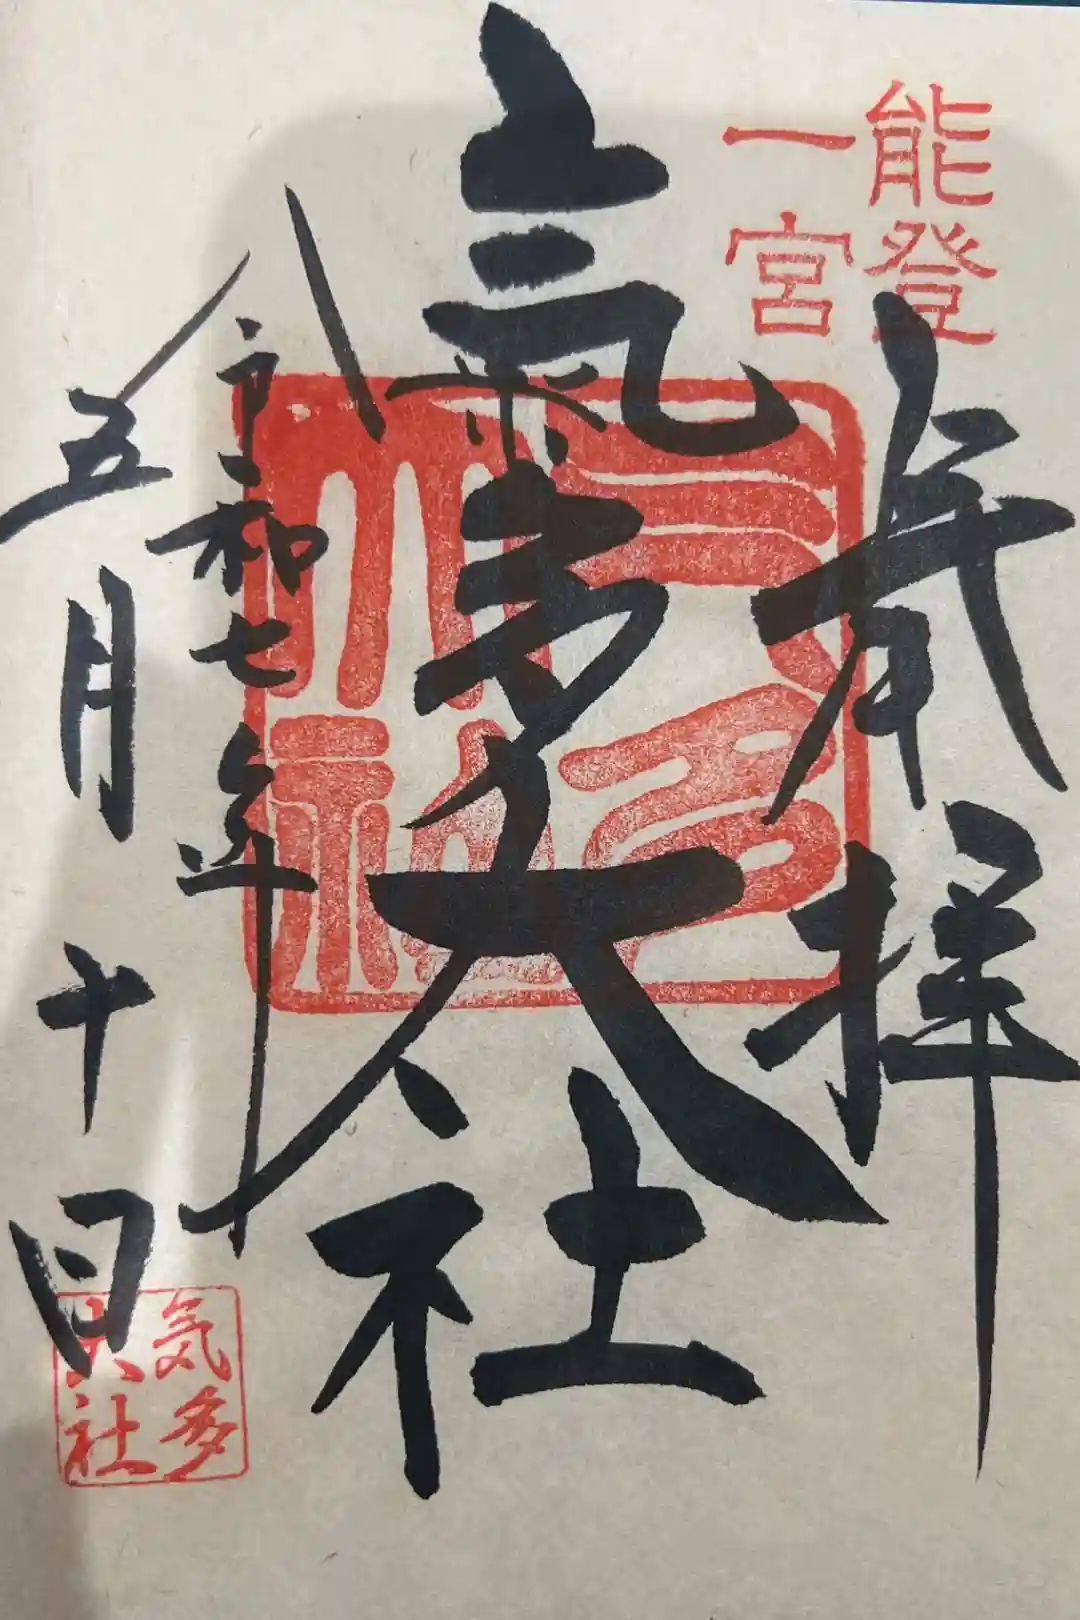 能登
一宮
奉拝
氣多大社
令和七年
五月十日
気多
大社